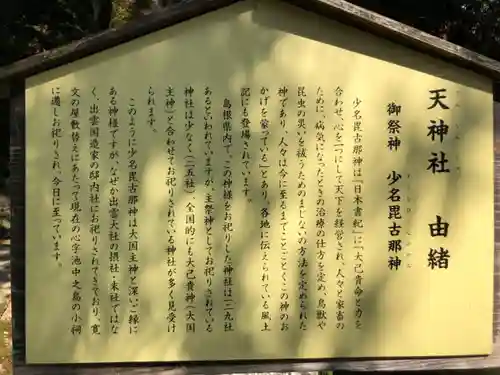 天神社　由緒
御祭神　少名毘古那神
少名毘古那神は「日本書紀」に「大己貴命と力を
合わせ、心を一つにして天下を経営され、人々と家畜の
ために、病気になったときの治療の仕方を定め、鳥獣や
昆虫の災いを祓うためのまじないの方法を定められた
神であり、人々は今に至るまでことごとくこの神のお
かげを蒙っている」とあり、各地に伝えられている風土
記にも登場されています。
島根県内で、この神様をお祀りした神社は一二九社
あるといわれていますが、主祭神としてお祀りされている
神社は少なく（二五社）全国的にも大己貴神（大国
主神）と合わせてお祀りされている神社が多く見受け
られます。
このように少名毘古那神は大国主神と深いご縁に
ある神様ですが、なぜか出雲大社の摂社・末社ではな
く、出雲国造家の邸内社にお祀りされてきており、寛
文の屋敷替えにあたって現在の心字池中之島の小祠
に遷しお祀りされ、今日に至っています。